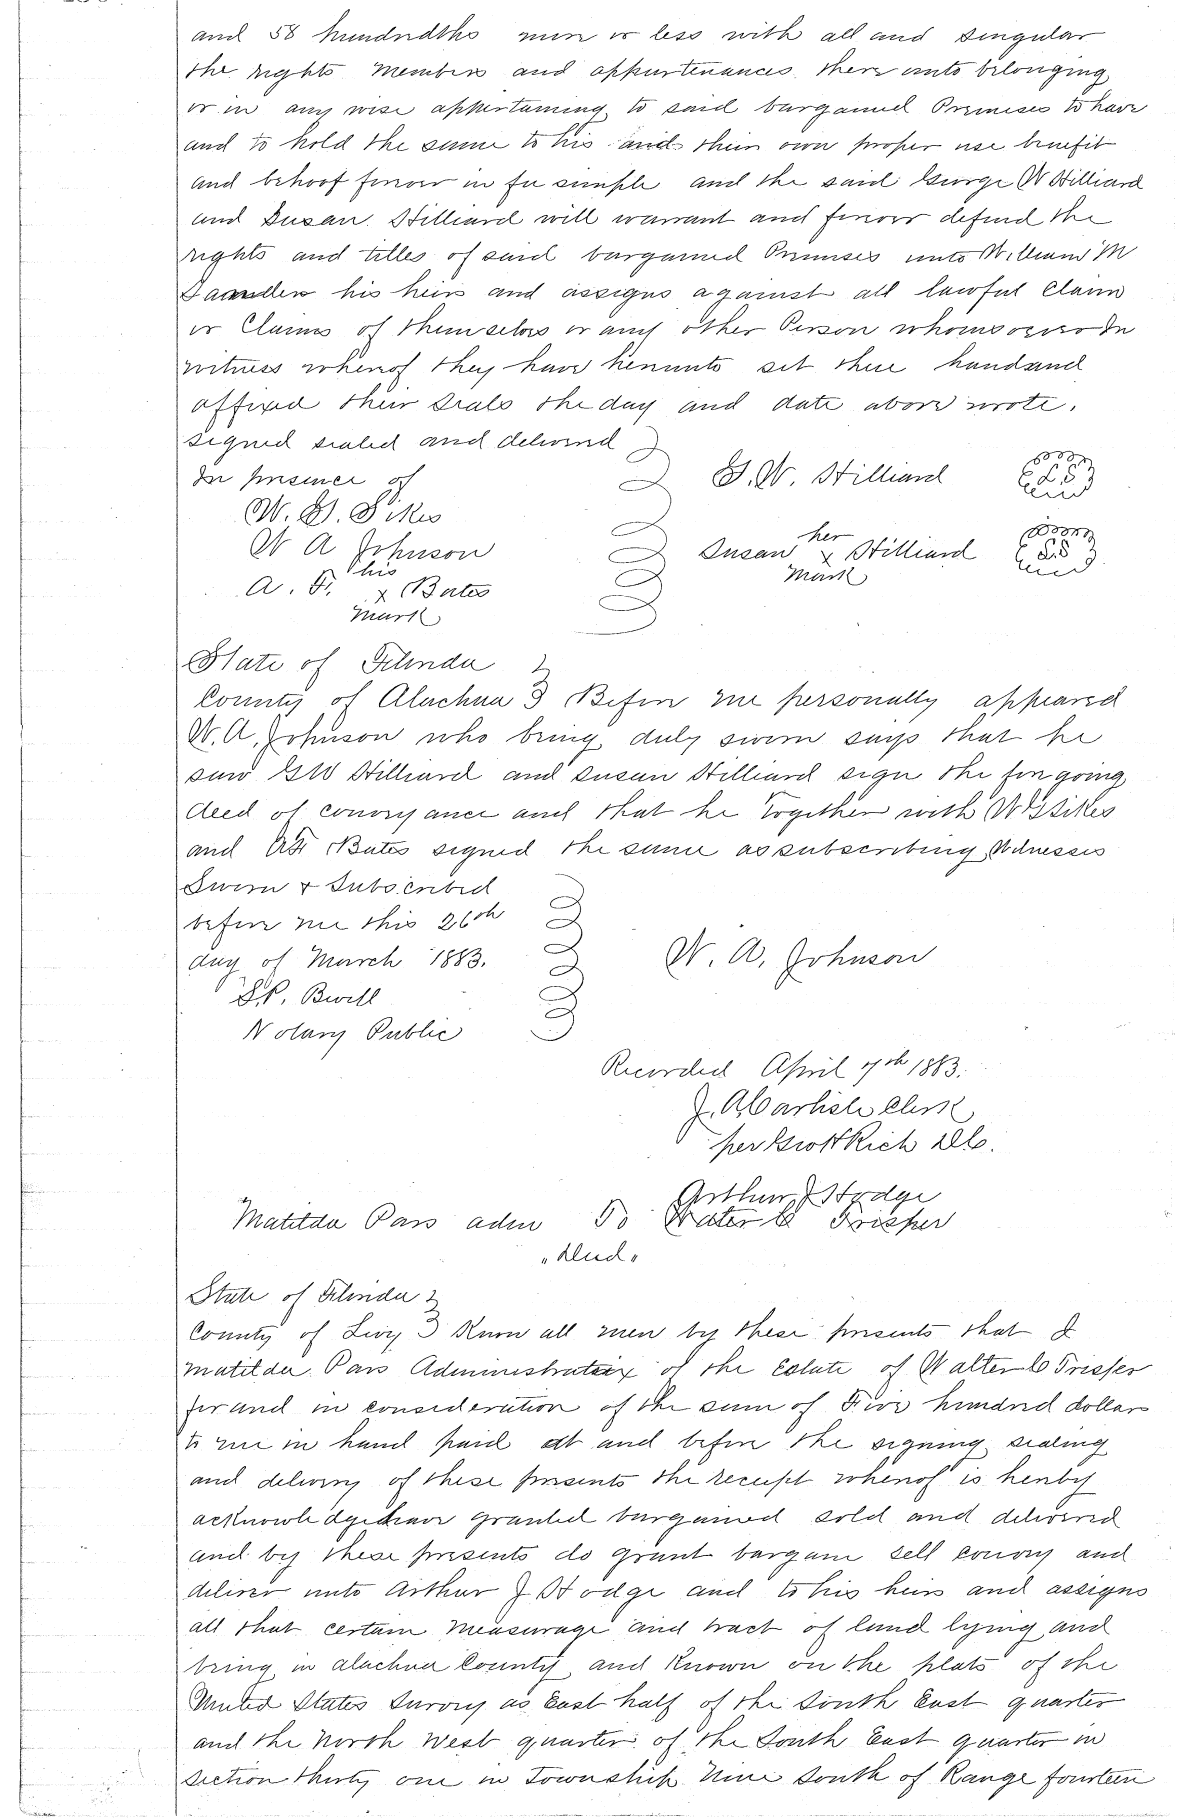 and 58 hundredths more or less with all and singular
the rights members and appurtenances there unto belonging
or in any wise appertaining to said bargained Premises to have
and to hold the same to his and their own proper use benefit
and behoof forever in fee simple and the said George W Hilliard
and Susan Hilliard will warrant and forever defend the
rights and titles of said bargained Premises unto William M
his heirs and assigns against all lawful Claim
or Claims of themselves or any other Person whomsoever In
witness whereof they have hereunto set there hand and
affixed their seals the day and date above wrote.
signed sealed and delivered
In presence of G. W. Hilliard
W. G. Sikes
W A Johnson her
Susan x Hilliard
mark
his
A. F. x Bates
mark
State of Florida
County of Alachua } Before me personally appeared
W. A. Johnson who being duly sworn says that he
saw GW Hilliard and Susan Hilliard sign the foregoing
deed of conveyance and that he Together with WG Sikes
and AF Bates signed the same as subscribing Witnesses
Sworn + Subscribed
before me this 26th
day of March 1883. W. A. Johnson
Notary Public
Recorded April 7th 1883.
J. A Carlisle Clerk
per Rich D.C.
Arthur J Hodge
Matilda Pars adm To Water C Frisper
"Deed"
State of Florida
County of Levy } Know all men by these presents that I
Matilda Pars Administratrix of the Estate of Walter C Trisper
for and in consideration of the sum of Five hundred dollars
to me in hand paid at and before the signing sealing
and delivery of these presents the receipt whereof is hereby
acknowledged have granted bargained sold and delivered
and by these presents do grant bargain sell convey and
deliver unto Arthur J Hodge and to his heirs and assigns
all that certain measurage and tract of land lying and
being in Alachua County and Known on the plats of the
United States Survey as East half of the South East quarter
and the North West quarter of the South East quarter in
Section thirty one in Township Nine South of Range fourteen